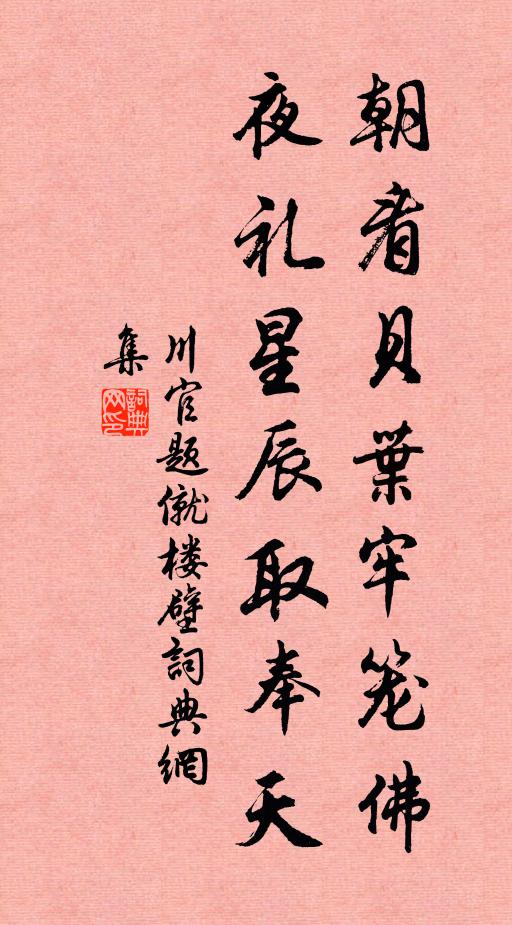 朝看貝葉牢笼佛
夜礼星辰取奉天
川官题僦楼壁詞典網
集
詞典
网印